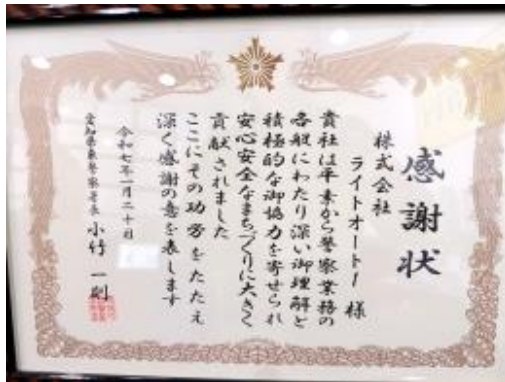 感謝状
株式会社
ライトオート 様
貴社は平素から警察業務の
各般にわたり深い御理解と
積極的な御協力を寄せられ
安心安全なまちづくりに大きく
貢献されました
ここにその功労をたたえ
深く感謝の意を表します
令和七年一月二十日
愛知県東警察署長 小竹 一則